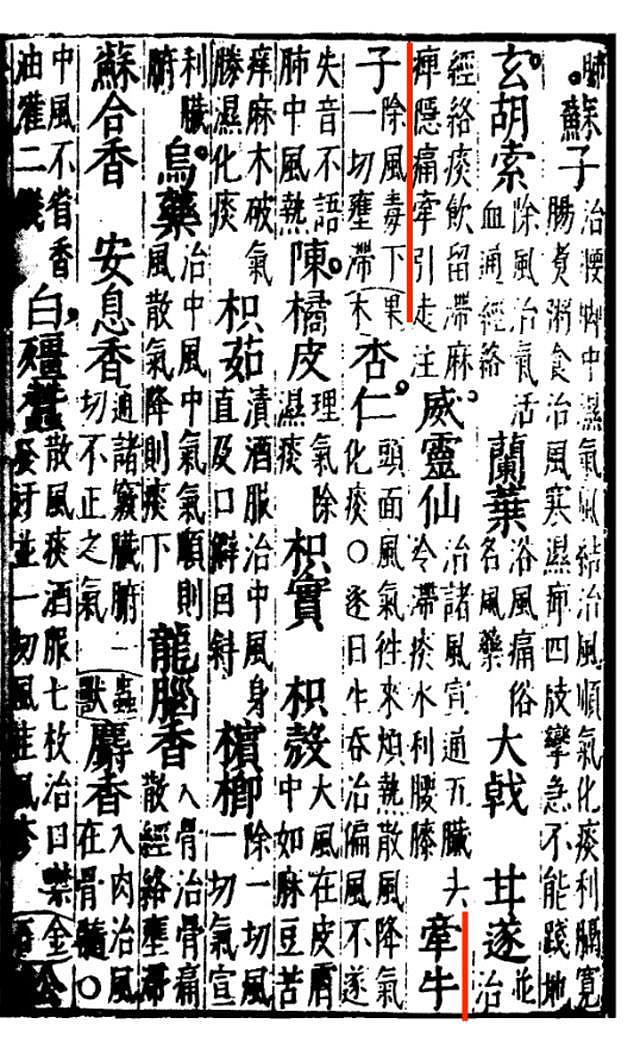 蘇子
治腰脚中濕氣風結治風順氣化痰利膈寬
腸煮粥食治風寒濕痹四肢攣急不能踐地
玄胡索
除風治氣活
血通經絡
蘭葉
浴風痛俗
名風藥
大戟
甘遂
並
治
經絡痰飲留滯麻
痺隱痛牽引走注
威靈仙
治諸風宣通五臟
冷滯痰水利腰膝
牽牛
子
除風毒下
一切壅滯
果
木
杏仁
頭面風氣往來煩熱散風降氣
化痰○逐日生吞治偏風不遂
失音不語
肺中風熱
陳橘皮
理氣除
濕痰
枳實
枳殼
大風在皮膚
中如麻豆苦
痒麻木破氣
勝濕化痰
枳茹
漬酒服治中風身
直及口僻目斜
檳榔
除一切風
一切氣宣
利臟
腑
烏藥
治中風中氣氣順則
風散氣降則痰下
龍腦香
入骨治骨痛
散經絡壅滯
蘇合香
安息香
通諸竅臟腑一
切不正之氣
蟲
獸
麝香
入肉治風
在骨髓○
中風不省香
油灌二錢
白殭蠶
散風痰酒服七枚治口噤
發汗並一切風疰風疹
金